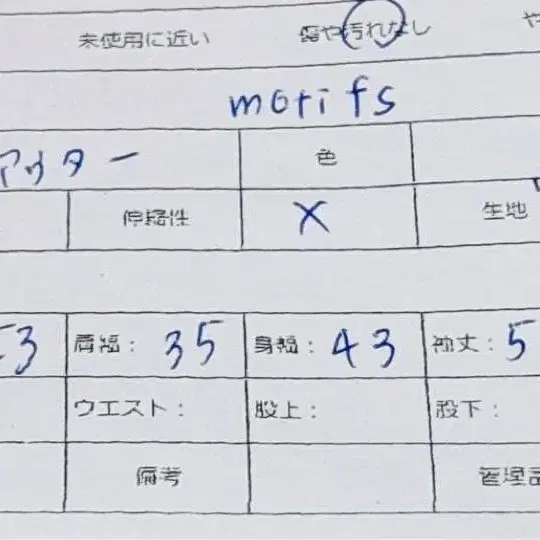 未使用に近い 傷や汚れなし や
motifs
アウター 色
伸縮性 X 生地
53 肩幅: 35 身幅: 43 袖丈: 5
ウエスト: 股上: 股下:
備考 管理